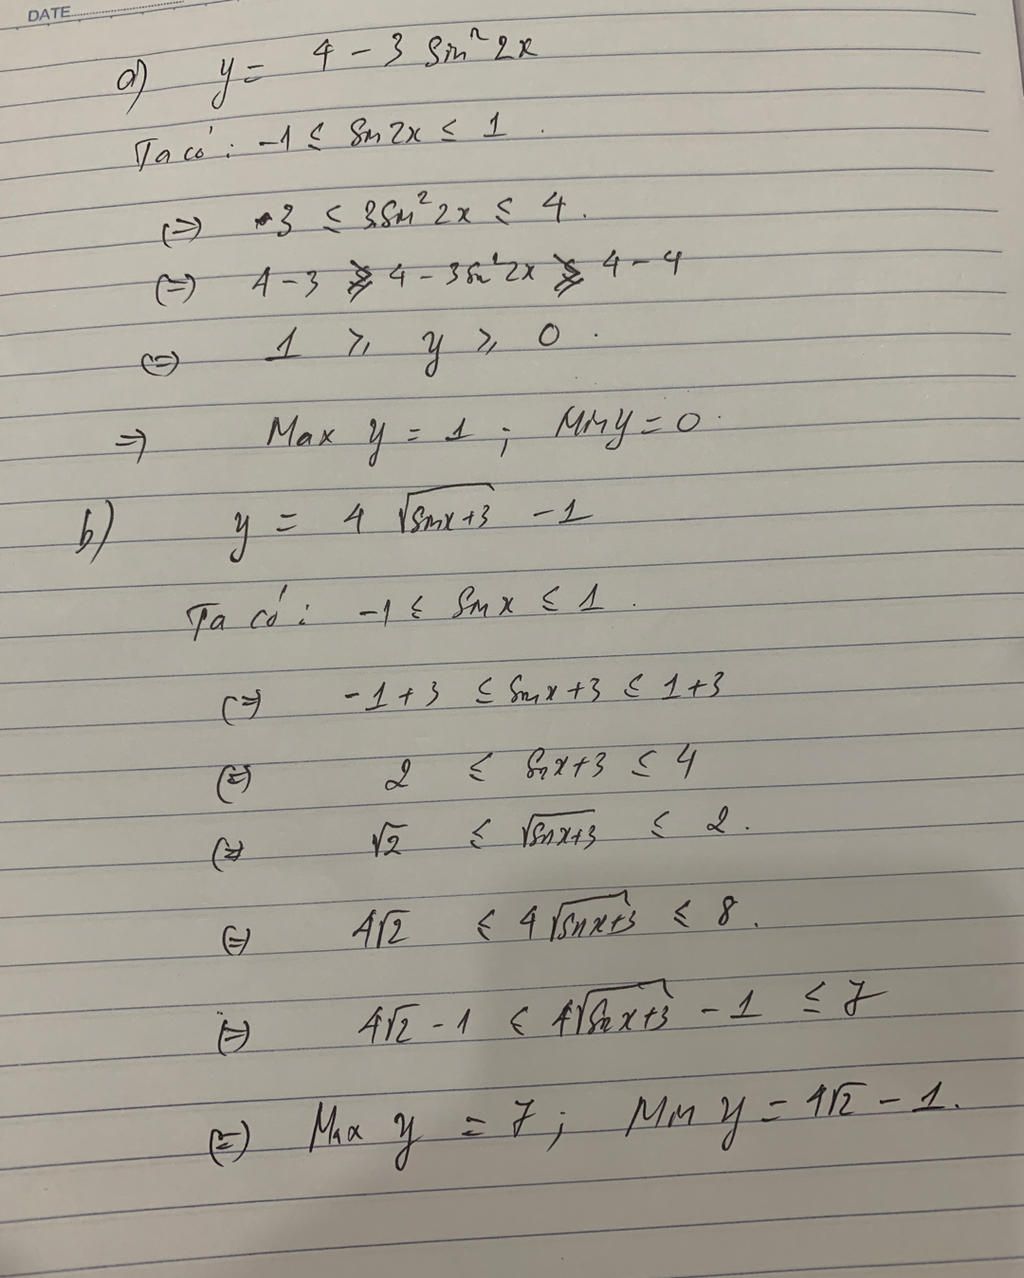 DATE
a) y = 4 - 3 Sin² 2x
Ta có: -1 ≤ Sin 2x ≤ 1.
(=) 3 ≤ 3Sin² 2x ≤ 4.
(=) 4 - 3 ≥ 4 - 3Sin² 2x ≥ 4 - 4
(=) 1 ≥ y ≥ 0.
=) Max y = 1; Min y = 0.
b) y = 4 √(Sinx+3) - 1
Ta có: -1 ≤ Sin x ≤ 1.
(=) -1 + 3 ≤ Sinx + 3 ≤ 1 + 3
(=) 2 ≤ Sinx + 3 ≤ 4
(=) √2 ≤ √(Sinx+3) ≤ 2.
(=) 4√2 ≤ 4√(Sinx+3) ≤ 8.
(=) 4√2 - 1 ≤ 4√(Sinx+3) - 1 ≤ 7
(=) Max y = 7; Min y = 4√2 - 1.